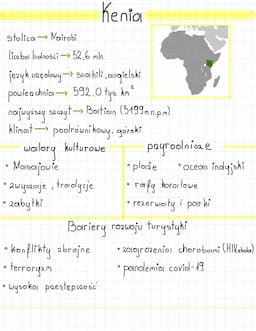 Kenia
stolica → Nairobi
liczba ludności → 52,6 mln
język urzędowy → suahili, angielski
powierzchnia → 592,0 tys km²
najwyższy szczyt → Bation (5199 m n.p.m)
klimat → podrównikowy, górski
walory kulturowe
• Masajowie
• zwyczaje, tradycje
• zabytki
przyrodnicze
• plaże • ocean indyjski
• rafy koralowe
• rezerwaty i parki
Bariery rozwoju turystyki
• konflikty zbrojne
• terroryzm
• wysoka przestępczość
• zagrożenia chorobami (HIV, ebola)
• pandemia covid-19